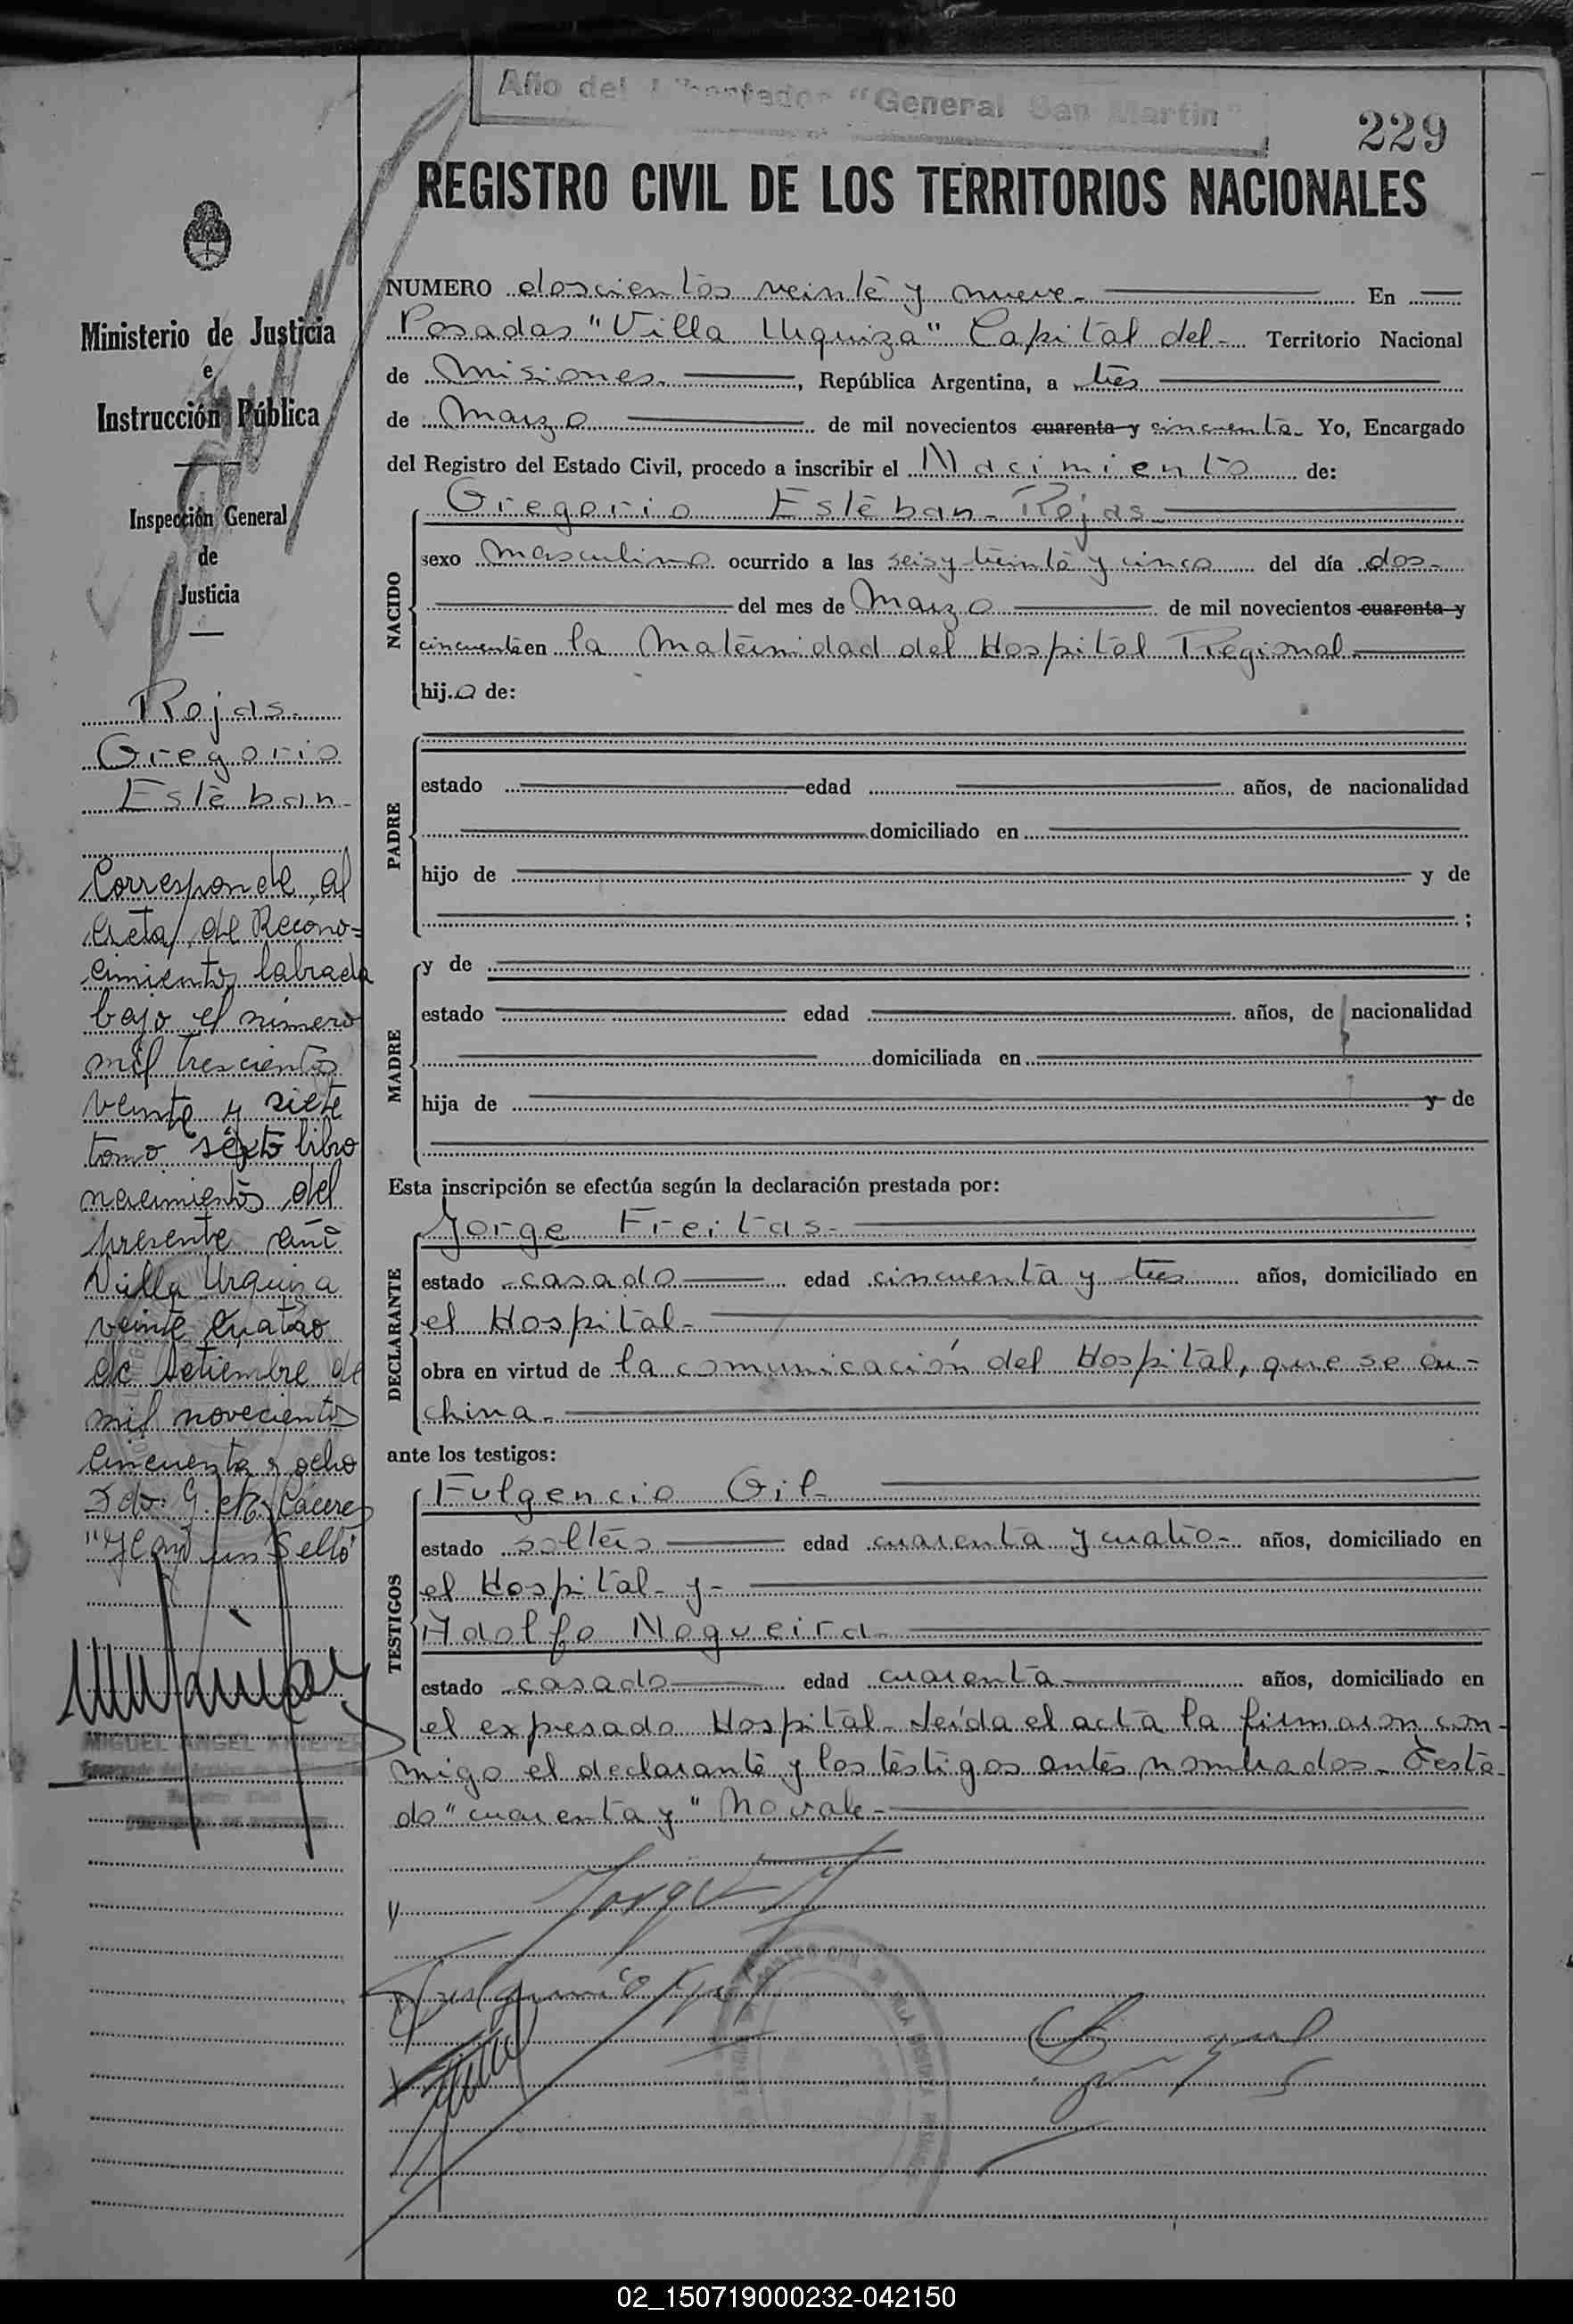 Año del Libertador "General San Martin"
229
REGISTRO CIVIL DE LOS TERRITORIOS NACIONALES
Ministerio de Justicia
e
Instrucción Pública
Inspección General
de
Justicia
Rojas.
Gregorio
Esteban.
Corresponde al
Acta de Recono=
cimiento labrada
bajo el número
mil trescientos
veinte y siete
tomo sexto libro
nacimientos del
presente año
Villa Urquiza
veinte cuatro
de Setiembre de
mil novecientos
cincuenta y ocho
Fdo: G. de Cáceres
"Hay un Sello"
MIGUEL ANGEL
NUMERO doscientos veinte y nueve. En
Posadas "Villa Urquiza" Capital del Territorio Nacional
de Misiones. , República Argentina, a tres
de Marzo de mil novecientos cuarenta y cincuenta. Yo, Encargado
del Registro del Estado Civil, procedo a inscribir el Nacimiento de:
NACIDO
Gregorio Esteban Rojas
sexo masculino ocurrido a las seis y treinta y cinco del día dos
del mes de Marzo de mil novecientos cuarenta y
cincuenta en la Maternidad del Hospital Regional
hij.o de:
PADRE
estado edad años, de nacionalidad
domiciliado en
hijo de y de
;
MADRE
y de
estado edad años, de nacionalidad
domiciliada en
hija de y de
Esta inscripción se efectúa según la declaración prestada por:
DECLARANTE
Jorge Freitas
estado casado edad cincuenta y tres años, domiciliado en
el Hospital
obra en virtud de la comunicación del Hospital, que se ar-
chiva.
ante los testigos:
TESTIGOS
Fulgencio Gil
estado soltero edad cuarenta y cuatro años, domiciliado en
el Hospital y
Adolfo Nogueira
estado casado edad cuarenta años, domiciliado en
el expresado Hospital. Leída el acta la firmaron con-
migo el declarante y los testigos antes nombrados. Testa-
do "cuarenta y" No vale
y
02_150719000232-042150